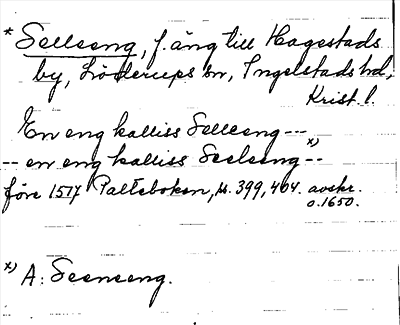 * Selleeng, f. äng till Hagestads
by, Löderups sn, Ingelstads hd,
Krist. l.
En eng kalliss Selleeng ---
-- en eng kalliss Seeleeng x) --
före 1517 Palteboken, ss. 399, 404. avskr.
o. 1650.
x) A: Seeneeng.